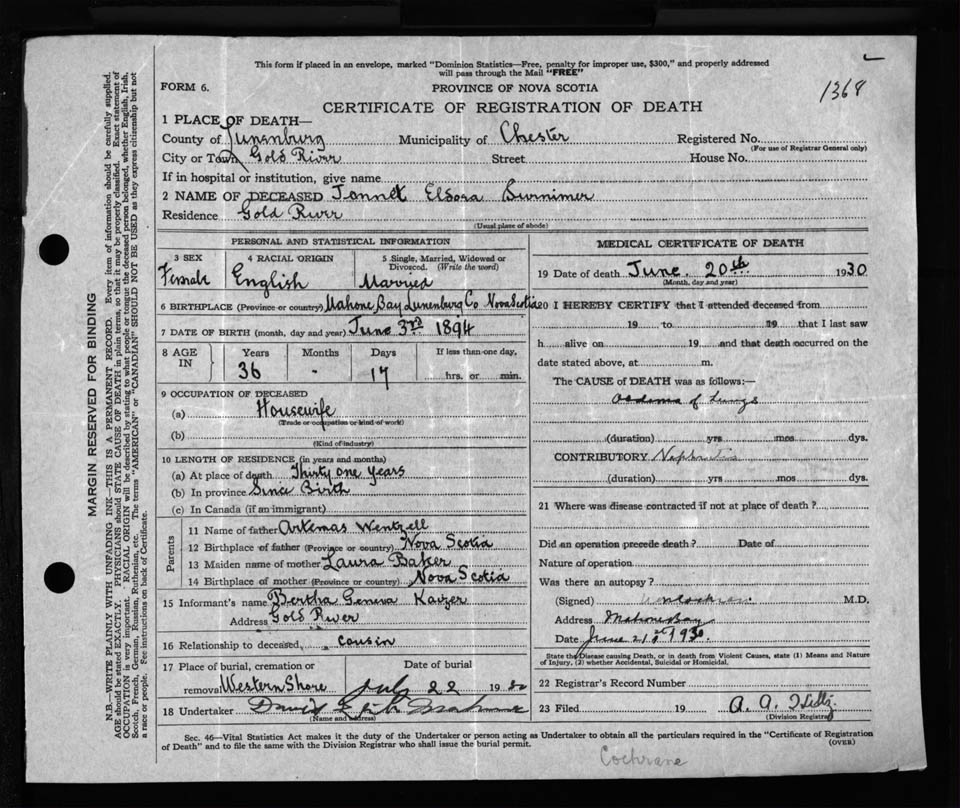 This form if placed in an envelope, marked "Dominion Statistics—Free, penalty for improper use, $300," and properly addressed
will pass through the Mail "FREE"
1368
FORM 6.
PROVINCE OF NOVA SCOTIA
CERTIFICATE OF REGISTRATION OF DEATH
1 PLACE OF DEATH—
County of Lunenburg Municipality of Chester Registered No.
(For use of Registrar General only)
City or Town Gold River Street House No.
If in hospital or institution, give name
2 NAME OF DECEASED Jannet Eldora Burnimer
Residence Gold River
(Usual place of abode)
PERSONAL AND STATISTICAL INFORMATION
3 SEX 4 RACIAL ORIGIN 5 Single, Married, Widowed or Divorced. (Write the word)
Female English Married
6 BIRTHPLACE (Province or country) Mahone Bay Lunenburg Co Nova Scotia
7 DATE OF BIRTH (month, day and year) June 3rd 1894
8 AGE IN Years Months Days If less than one day,
36 - 17 hrs. or min.
9 OCCUPATION OF DECEASED
(a) Housewife
(Trade or occupation or kind of work)
(b)
(Kind of industry)
10 LENGTH OF RESIDENCE (in years and months)
(a) At place of death Thirty one Years
(b) In province Since Birth
(c) In Canada (if an immigrant)
Parents
11 Name of father Artemas Wentzell
12 Birthplace of father (Province or country) Nova Scotia
13 Maiden name of mother Laura Baker
14 Birthplace of mother (Province or country) Nova Scotia
15 Informant's name Bertha Geneva
Address Gold River
16 Relationship to deceased cousin
17 Place of burial, cremation or removal Western Shore
Date of burial July 22 1930
18 Undertaker David
(Name and address)
MEDICAL CERTIFICATE OF DEATH
19 Date of death June 20th 1930
(Month, day and year)
20 I HEREBY CERTIFY that I attended deceased from
19 to 19 that I last saw
h alive on 19 and that death occurred on the
date stated above, at m.
The CAUSE of DEATH was as follows:
Oedema of Lungs
(duration) yrs mos dys.
CONTRIBUTORY Nephritis
(duration) yrs mos dys.
21 Where was disease contracted if not at place of death?
Did an operation precede death? Date of
Nature of operation
Was there an autopsy?
(Signed) M.D.
Address Mahone Bay
Date June 21st 1930
State the Disease causing Death, or in death from Violent Causes, state (1) Means and Nature
of Injury, (2) whether Accidental, Suicidal or Homicidal.
22 Registrar's Record Number
23 Filed 19 A. A.
(Division Registrar)
Sec. 46—Vital Statistics Act makes it the duty of the Undertaker or person acting as Undertaker to obtain all the particulars required in the "Certificate of Registration
of Death" and to file the same with the Division Registrar who shall issue the burial permit.
(OVER)
Cochrane
MARGIN RESERVED FOR BINDING
N.B.—WRITE PLAINLY WITH UNFADING INK—THIS IS A PERMANENT RECORD. Every item of information should be carefully supplied.
AGE should be stated EXACTLY. PHYSICIANS should STATE CAUSE OF DEATH in plain terms, so that it may be properly classified. Exact statement of
OCCUPATION is very important. RACIAL ORIGIN will be described by stating to what people or tongue the deceased person belonged, whether English, Irish,
Scotch, French, German, Russian, Ruthenian, etc. The terms "AMERICAN" or "CANADIAN" SHOULD NOT BE USED as they express citizenship but not
a race or people. See instructions on back of Certificate.